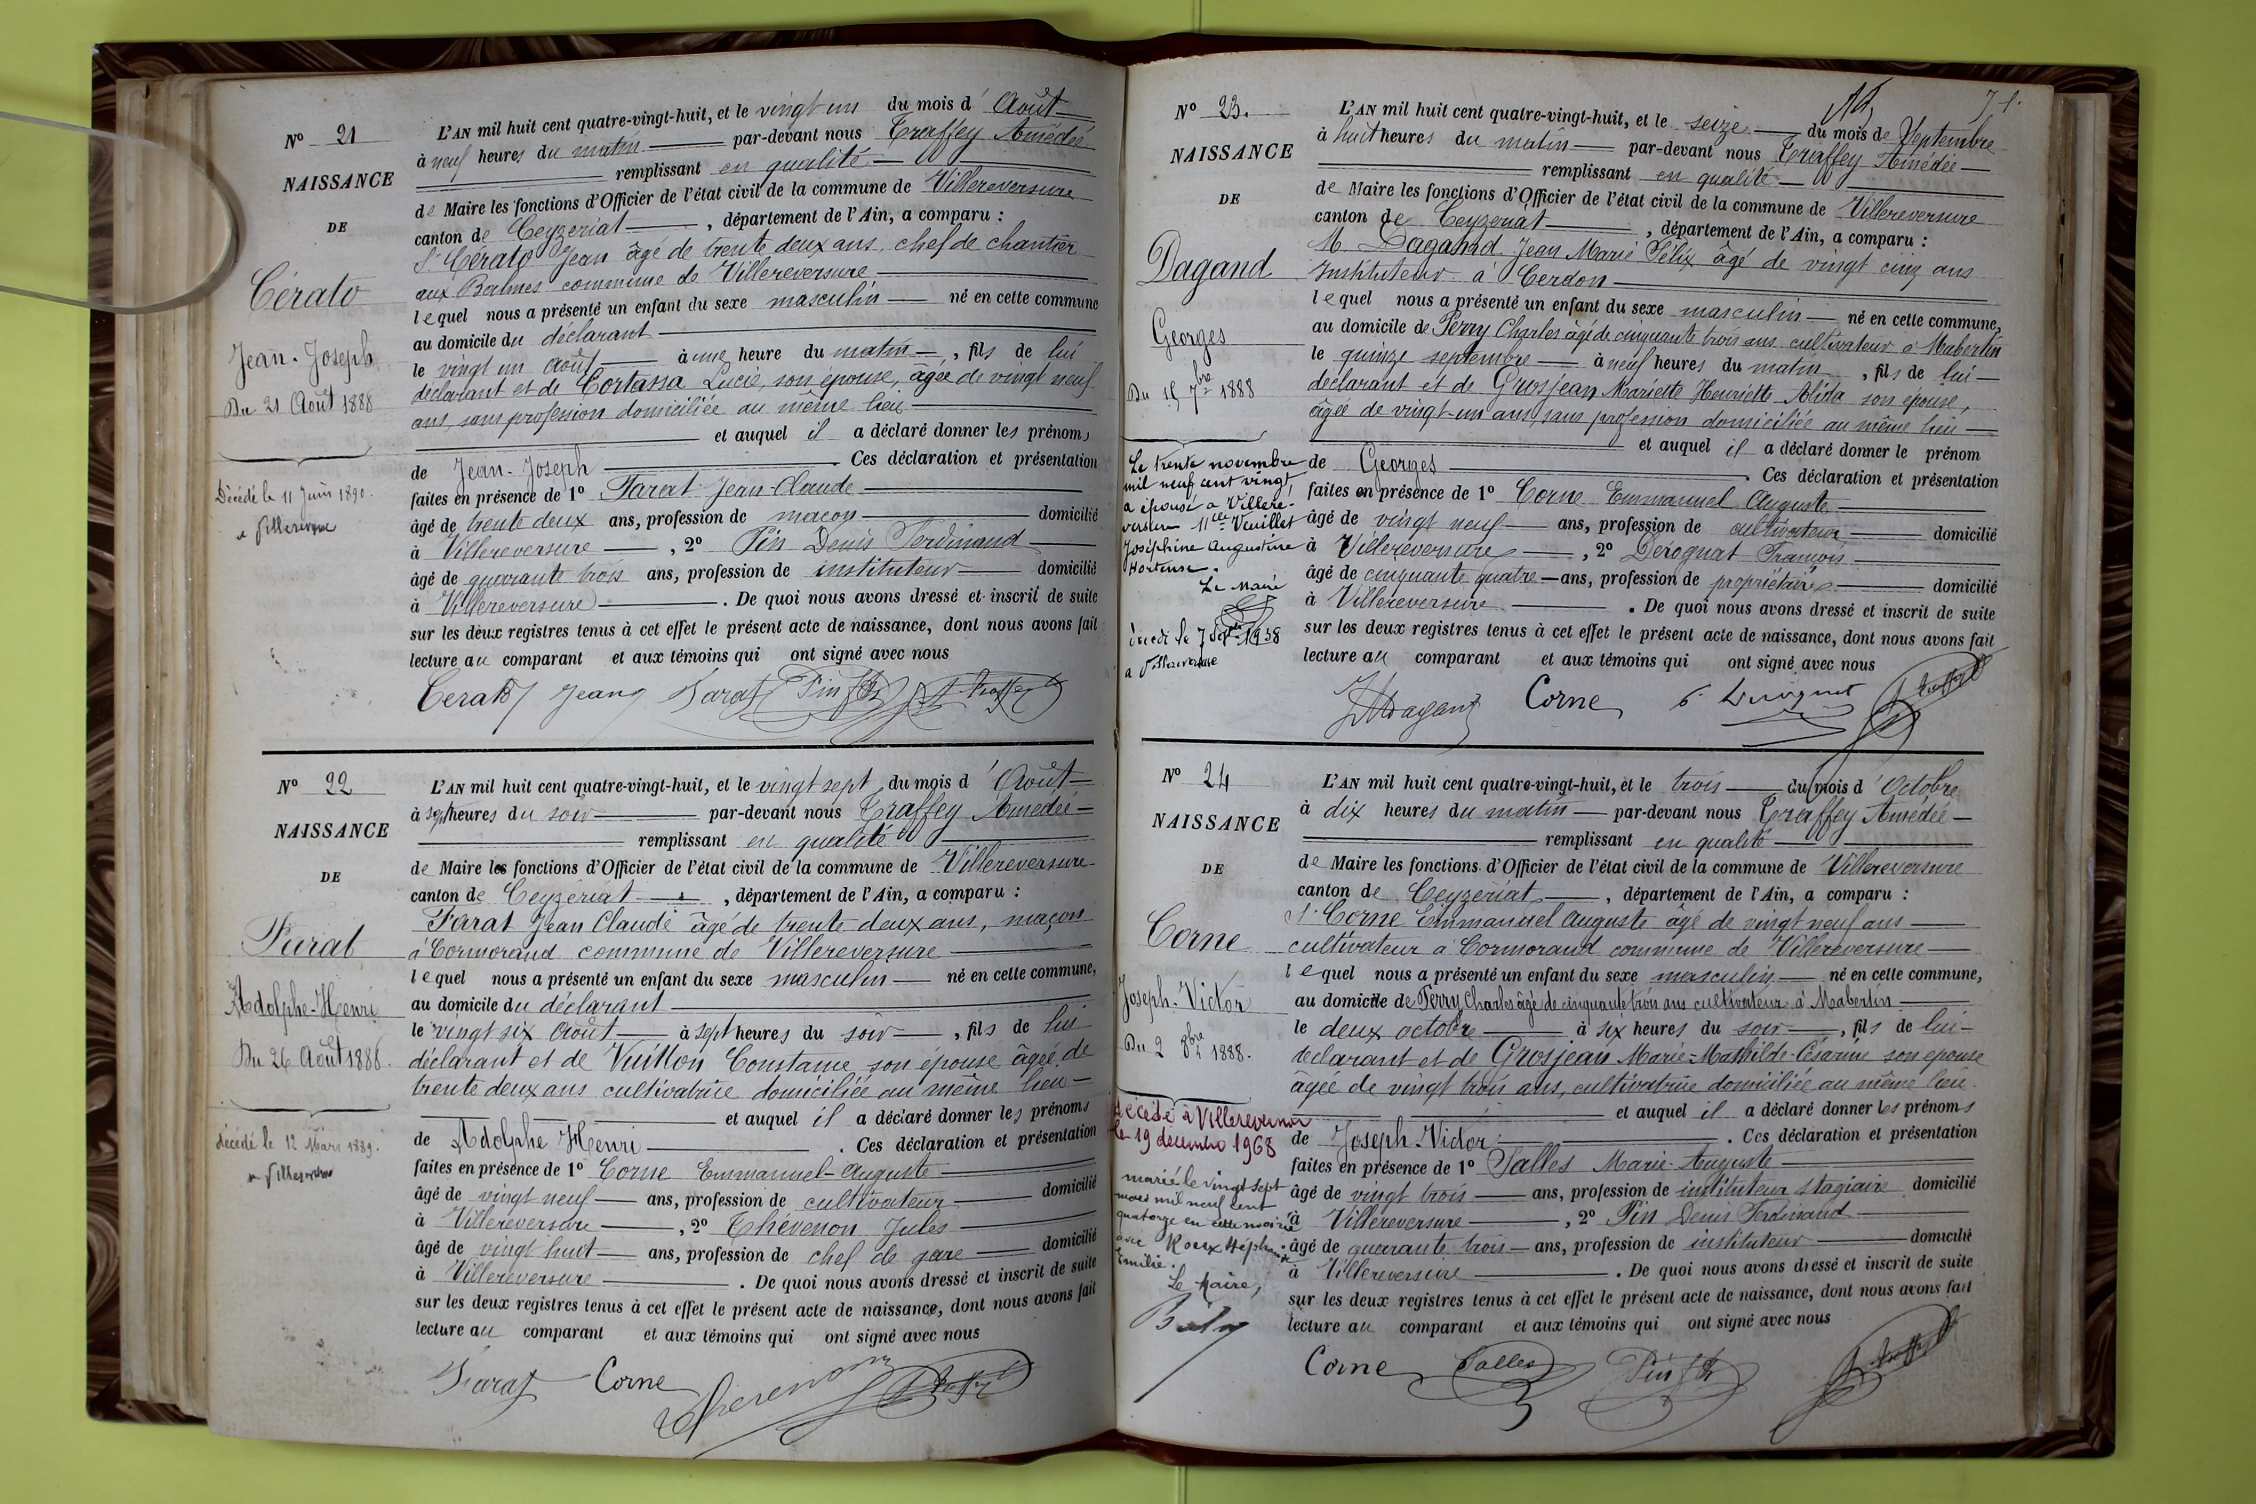 N° 21
NAISSANCE
DE
Cérato
Jean-Joseph
Du 21 Août 1888
Décédé le 11 Juin 1890.
a Villereversure
L'AN mil huit cent quatre-vingt-huit, et le vingt un du mois d'Août
à neuf heures du matin par-devant nous Traffey Amédée
remplissant en qualité
de Maire les fonctions d'Officier de l'état civil de la commune de Villereversure
canton de Ceyzeriat, département de l'Ain, a comparu :
Sr Cérato Jean âgé de trente deux ans, chef de chantier
aux Balmes commune de Villereversure
lequel nous a présenté un enfant du sexe masculin né en cette commune
au domicile du déclarant
le vingt un août à une heure du matin, fils de lui
déclarant et de Cortassa Lucie, son épouse, âgée de vingt neuf
ans, sans profession domiciliée au même lieu
et auquel il a déclaré donner les prénoms
de Jean-Joseph Ces déclaration et présentation
faites en présence de 1° Farat Jean-Claude
âgé de trente deux ans, profession de maçon domicilié
à Villereversure, 2° Pin Denis Ferdinand
âgé de quarante trois ans, profession de instituteur domicilié
à Villereversure. De quoi nous avons dressé et inscrit de suite
sur les deux registres tenus à cet effet le présent acte de naissance, dont nous avons fait
lecture au comparant et aux témoins qui ont signé avec nous
Cerato Jean Farat Pin A. Traffey
N° 22
NAISSANCE
DE
Farat
Adolphe-Henri
Du 26 Août 1888.
décédé le 12 Mars 1889.
a Villereversure
L'AN mil huit cent quatre-vingt-huit, et le vingt sept du mois d'Août
à sept heures du soir par-devant nous Traffey Amédée
remplissant en qualité
de Maire les fonctions d'Officier de l'état civil de la commune de Villereversure
canton de Ceyzériat, département de l'Ain, a comparu :
Farat Jean Claude âgé de trente deux ans, maçon
à Cormorand commune de Villereversure
lequel nous a présenté un enfant du sexe masculin né en cette commune,
au domicile du déclarant
le vingt six Août à sept heures du soir, fils de lui
déclarant et de Vuillon Constance son épouse âgée de
trente deux ans cultivatrice domiciliée au même lieu
et auquel il a déclaré donner les prénoms
de Adolphe Henri. Ces déclaration et présentation
faites en présence de 1° Corne Emmanuel-Auguste
âgé de vingt neuf ans, profession de cultivateur domicilié
à Villereversure, 2° Thévenon Jules
âgé de vingt huit ans, profession de chef de gare domicilié
à Villereversure. De quoi nous avons dressé et inscrit de suite
sur les deux registres tenus à cet effet le présent acte de naissance, dont nous avons fait
lecture au comparant et aux témoins qui ont signé avec nous
Farat Corne Thevenon A. Traffey
71.
N° 23.
NAISSANCE
DE
Dagand
Georges
Du 15 7bre 1888
Le trente novembre
mil neuf cent vingt,
a épousé à Villere-
versure Melle Vuillet
Joséphine Augustine
Hortense.
Le Maire
Décédé le 7 Sept 1938
a Villereversure
L'AN mil huit cent quatre-vingt-huit, et le seize du mois de Septembre
à huit heures du matin par-devant nous Traffey Amédée
remplissant en qualité
de Maire les fonctions d'Officier de l'état civil de la commune de Villereversure
canton de Ceyzeriat, département de l'Ain, a comparu :
M. Dagand Jean Marie Félix âgé de vingt cinq ans
Instituteur à Cerdon
lequel nous a présenté un enfant du sexe masculin né en cette commune,
au domicile de Perry Charles âgé de cinquante trois ans cultivateur à Mabertin
le quinze septembre à neuf heures du matin, fils de lui
déclarant et de Grosjean Mariette Henriette Alida son épouse,
âgée de vingt-un ans, sans profession domiciliée au même lieu
et auquel il a déclaré donner le prénom
de Georges. Ces déclaration et présentation
faites en présence de 1° Corne Emmanuel Auguste
âgé de vingt neuf ans, profession de cultivateur domicilié
à Villereversure, 2° Dérognat François
âgé de cinquante quatre ans, profession de propriétaire domicilié
à Villereversure. De quoi nous avons dressé et inscrit de suite
sur les deux registres tenus à cet effet le présent acte de naissance, dont nous avons fait
lecture au comparant et aux témoins qui ont signé avec nous
Dagand Corne A. Traffey
N° 24
NAISSANCE
DE
Corne
Joseph-Victor
Du 2 8bre 1888.
décédé à Villereversure
le 19 décembre 1968
marié le vingt sept
mars mil neuf cent
quatorze en cette mairie
avec Roux Stéphanie
Emilie.
Le Maire,
L'AN mil huit cent quatre-vingt-huit, et le trois du mois d'Octobre
à dix heures du matin par-devant nous Traffey Amédée
remplissant en qualité
de Maire les fonctions d'Officier de l'état civil de la commune de Villereversure
canton de Ceyzériat, département de l'Ain, a comparu :
Sr Corne Emmanuel Auguste âgé de vingt neuf ans
cultivateur à Cormorand commune de Villereversure
lequel nous a présenté un enfant du sexe masculin né en cette commune,
au domicile de Perry Charles âgé de cinquante trois ans cultivateur à Mabertin
le deux octobre à six heures du soir, fils de lui
declarant et de Grosjean Marie-Mathilde-Césarine son epouse
âgée de vingt trois ans, cultivatrice domiciliée au même lieu.
et auquel il a déclaré donner les prénoms
de Joseph Victor. Ces déclaration et présentation
faites en présence de 1° Salles Marie-Auguste
âgé de vingt trois ans, profession de instituteur stagiaire domicilié
à Villereversure, 2° Pin Denis Ferdinand
âgé de quarante trois ans, profession de instituteur domicilié
à Villereversure. De quoi nous avons dressé et inscrit de suite
sur les deux registres tenus à cet effet le présent acte de naissance, dont nous avons fait
lecture au comparant et aux témoins qui ont signé avec nous
Corne Salles Pin A. Traffey